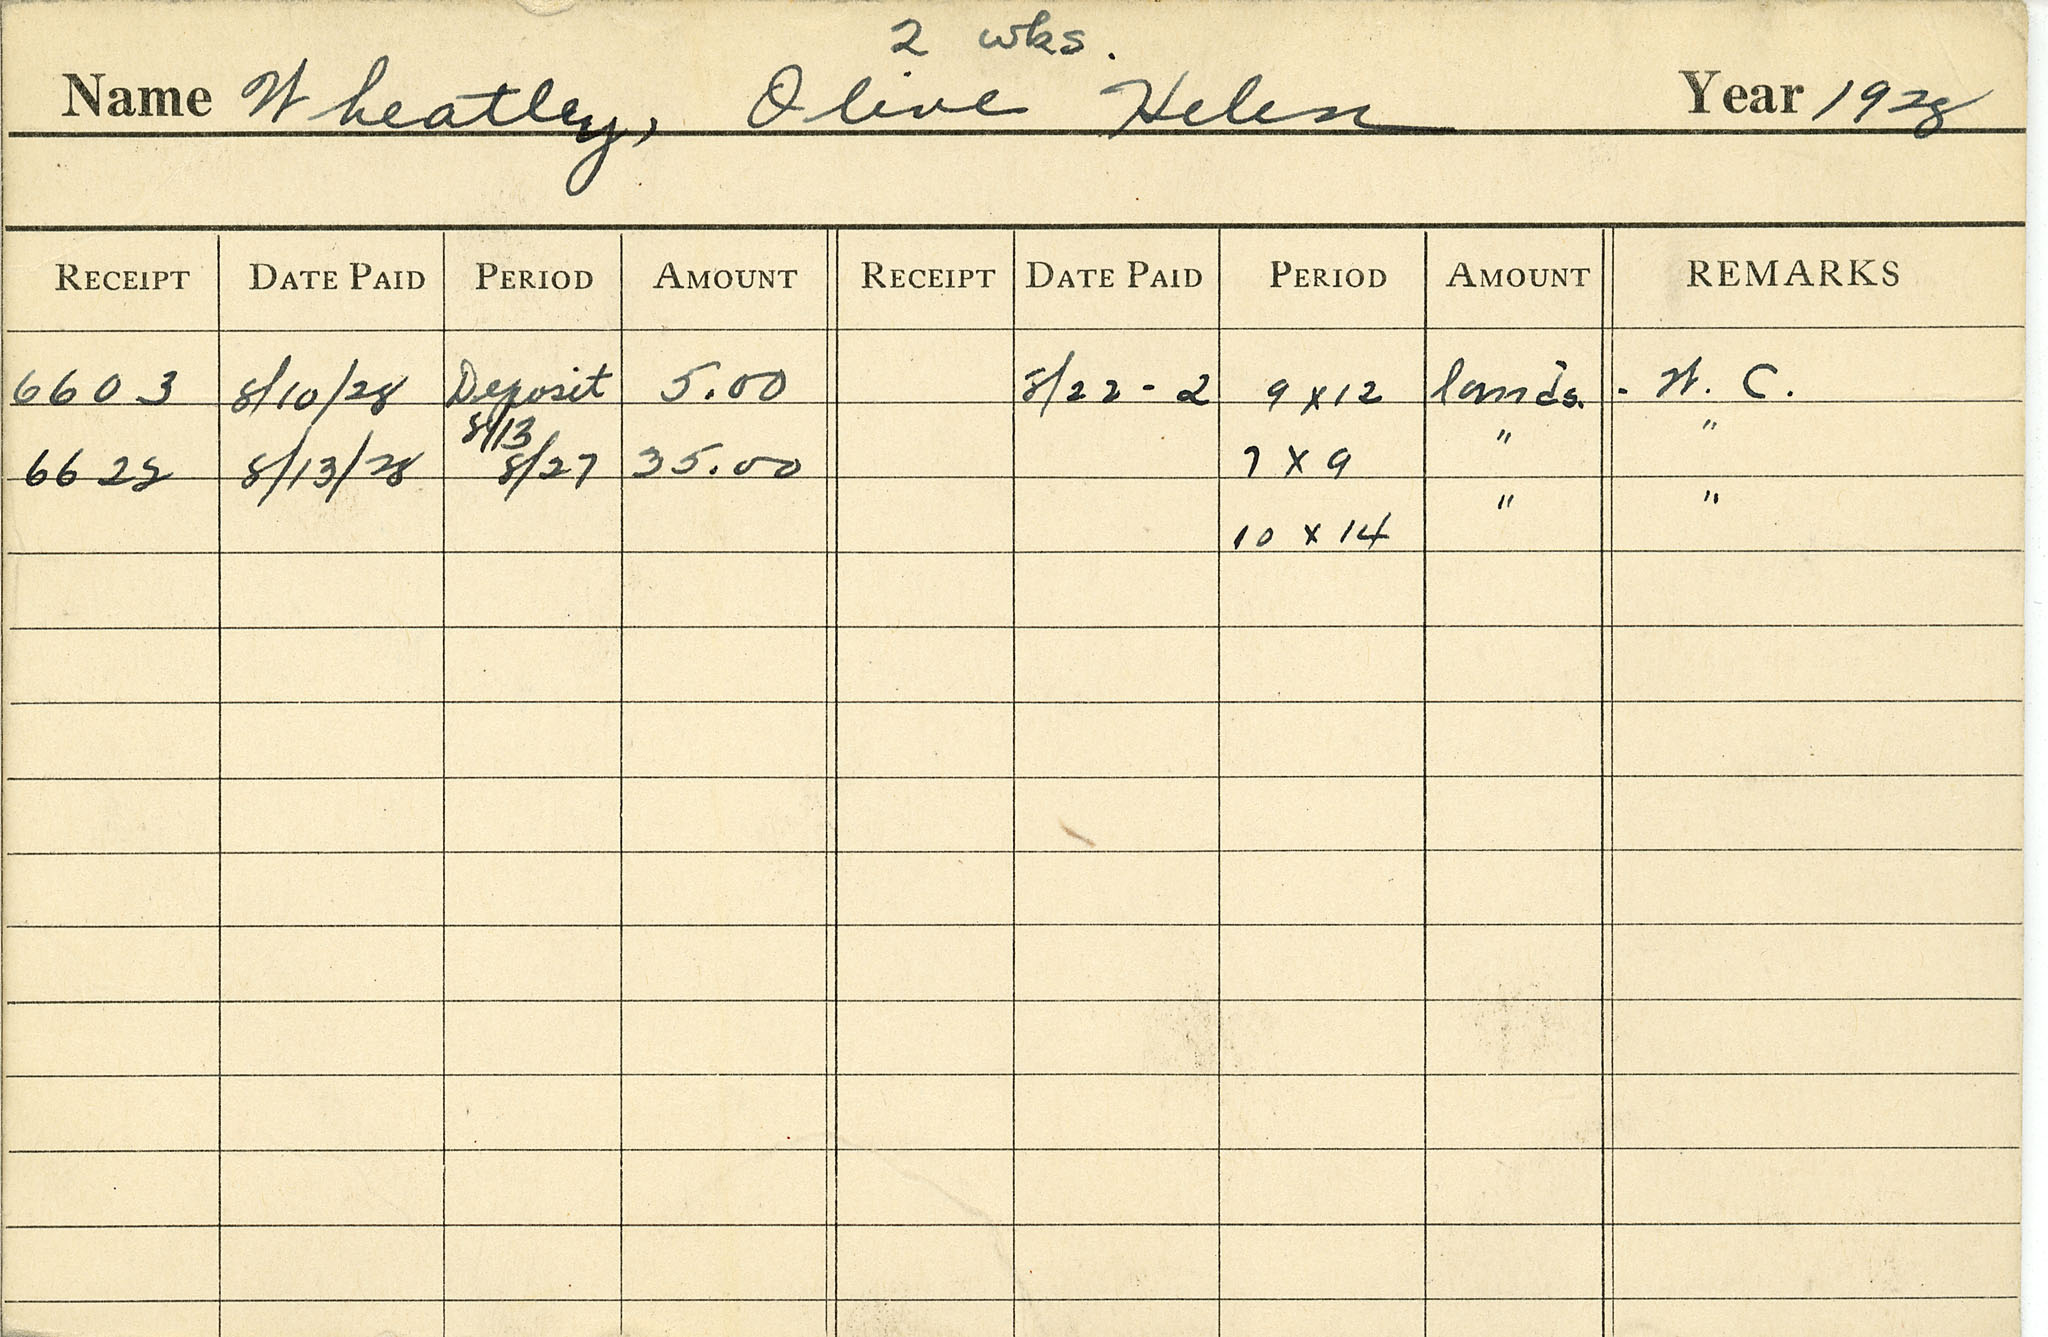 2 wks.
Name Wheatley, Olive Helen Year 1928
RECEIPT DATE PAID PERIOD AMOUNT RECEIPT DATE PAID PERIOD AMOUNT REMARKS
6603 8/10/28 Deposit 5.00 8/22 - 2 9 x 12 lands. - W. C.
8/13 " "
6628 8/13/28 8/27 35.00 7 x 9
" "
10 x 14